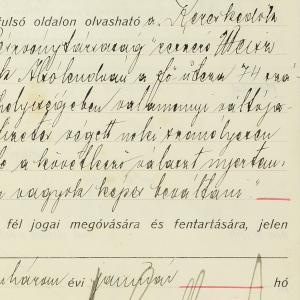 tulsó oldalon olvasható a „Kereskedők
részvénytársaság" czeyű Weisz
Alsólendván a fő utcza 74 szá
helyiségében valamennyi váltója
fizetés végett neki személyesen
a következő választ nyertem:
vagyok képes beváltani."
fél jogai megóvására és fentartására, jelen
három évi január hó